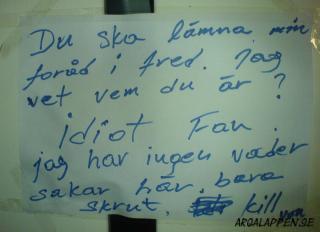 Du ska lämna min
foråd i fred. Jag
vet vem du är?
idiot Fan.
jag har ingen vader
sakar här. bara
skrut. kill
ARGALAPPEN.SE